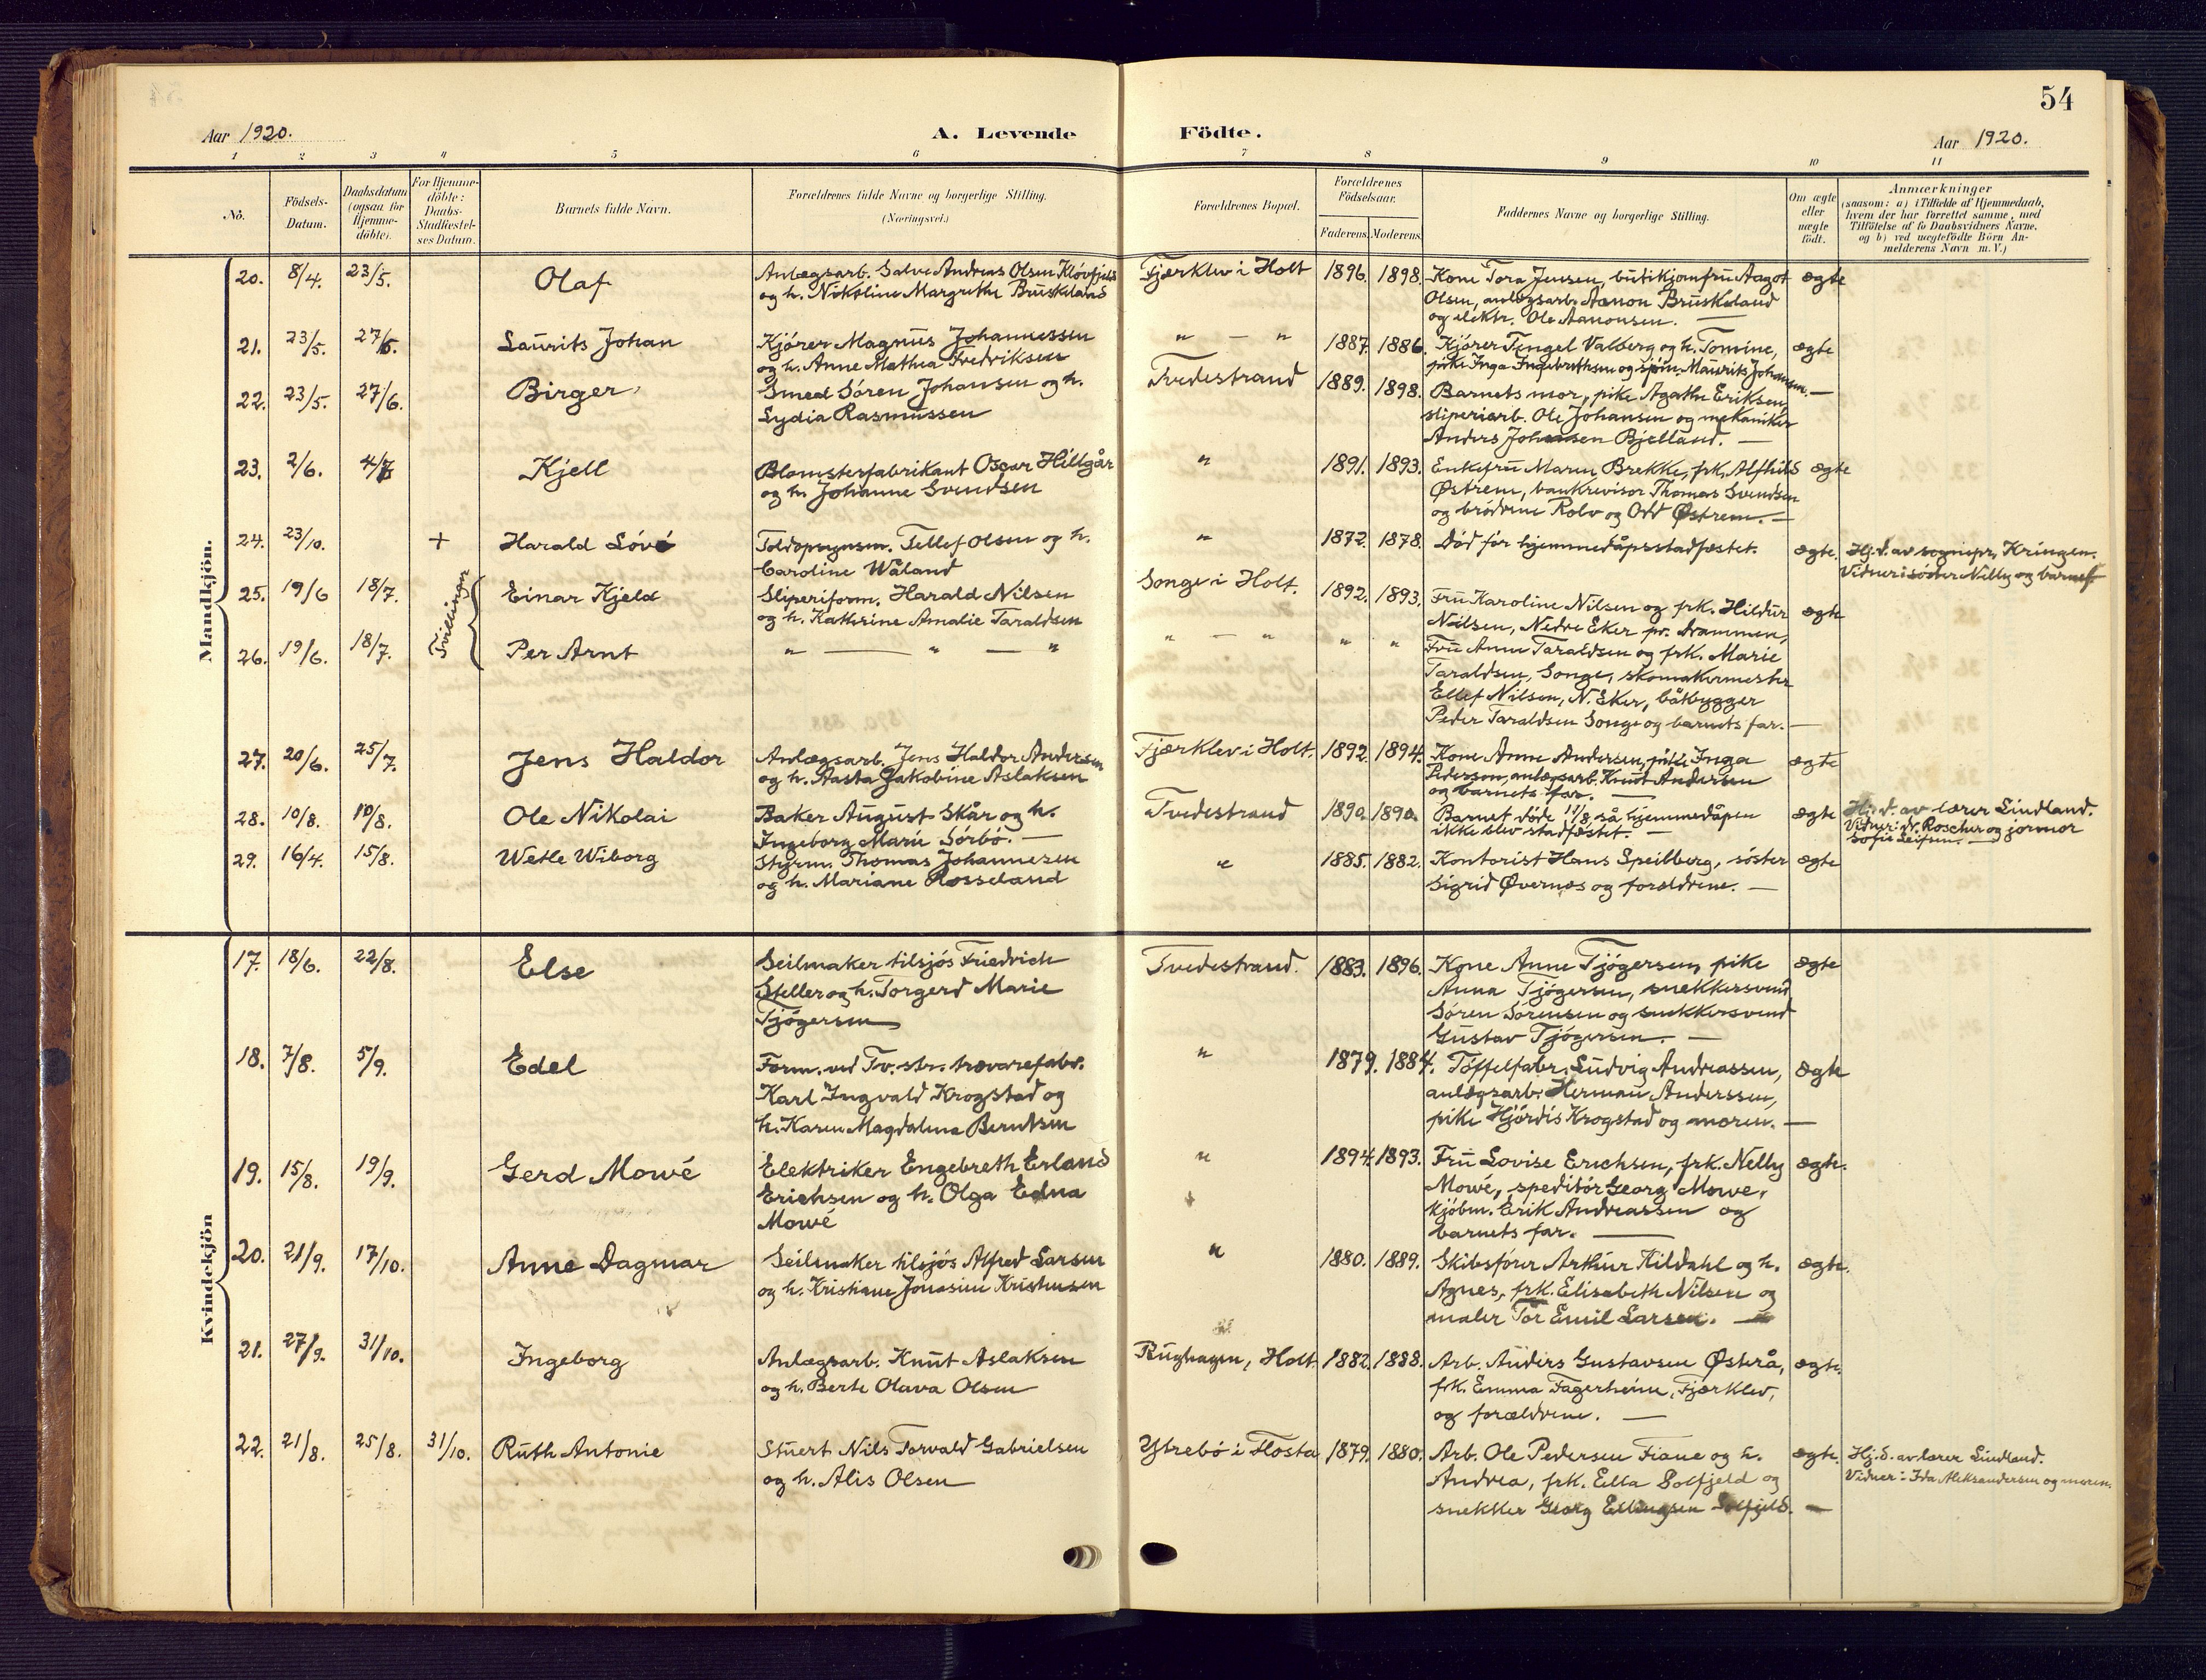 54
Aar 1920.
A. Levende Födte.
Aar 1920.
1 2 3 4 5 6 7 8 9 10 11
No.
Födsels-Datum.
Daabsdatum (ogsaa for Hjemme-döbte).
For Hjemme-döbte: Daabs-Stadfæstel-ses Datum.
Barnets fulde Navn.
Forældrenes fulde Navne og borgerlige Stilling.
(Næringsvei.)
Forældrenes Bopæl.
Forældrenes Födselsaar.
Faderens. Moderens.
Faddernes Navne og borgerlige Stilling.
Om ægte eller uægte født.
Anmærkninger
(saasom: a) i Tilfælde af Hjemmedaab,
hvem der har forrettet samme, med
Tilföielse af to Daabsvidners Navne.
og b) ved uægtefödte Börn An-
melderens Navn m. V.)
Mandkjön.
20. 8/4. 23/5. Olaf
Anlægsarb. Salve Andreas Olsen Kløvfjeld
og h. Nikoline Margrethe Bruskeland
Fjærklev i Holt 1896. 1898.
Kone Tora Jensen, butikjomfru Aagot
Olsen, anlægsarb. Aanon Bruskeland
og elektr. Ole Aanonsen. —
ægte
21. 23/5. 27/6. Laurits Johan
Kjører Magnus Johannessen
og h. Anne Mathea Fredriksen
" — " 1887. 1886.
Kjører Tengel Valberg og h. Tomine,
pike Inga Ingebrethsen og Maurits Johansen.
ægte
22. 23/5. 27/6. Birger
Smed Sören Johansen og h.
Lydia Rasmussen
Tvedestrand 1889. 1898.
Barnets mor, pike Agathe Eriksen,
sliperiarb. Ole Johansen og mekaniker
Anders Johansen Bjelland. —
—
23. 2/6. 4/7. Kjell
Blomsterfabrikant Oscar Hillgår
og h. Johanne Svendsen
" 1891. 1893.
Enkefru Maren Brekke, frk. Alfhild
Østrem, bankrevisor Thomas Svendsen
og brödrene Rolv og Odd Østrem. —
ægte
24. 23/10. + Harald Lövé
Toldopsynsm. Tellef Olsen og h.
Caroline Wåland
" 1872. 1878.
Död för hjemmedåpsstadfæstet.
ægte.
Hj.d. av sognepr. Kringen.
Vidner: søster Nelly og barnets
25. 19/6 18/7. Einar Kjeld
Tvillinger
Sliperiform. Harald Nilsen
og h. Kathrine Amalie Taraldsen
Songe i Holt. 1892. 1893.
Fru Karoline Nilsen og frk. Hildur
Nilsen, Nedre Eker pr. Drammen,
ægte
26. 19/6. 18/7. Per Arnt
" — " — "
" — " " "
Fru Anne Taraldsen og frk. Marie
Taraldsen, Songe, skomakermester
Ellef Nilsen, N. Eker, båtbygger
Peder Taraldsen Songe og barnets far. —
27. 20/6. 25/7. Jens Haldor
Anlægsarb. Jens Haldor Andersen
og h. Aasta Jakobine Aslaksen
Fjærklev i Holt. 1892. 1894.
Kone Anne Andersen, pike Inga
Pederson, anlægsarb. Knut Andersen
og barnets far. —
ægte
28. 10/8. 10/8. Ole Nikolai
Baker August Skår og h.
Ingeborg Marie Sörbö. —
Tvedestrand 1890. 1890.
Barnet döde 11/8 så hjemmedåpen
ikke blev stadfæstet. —
ægte
Hj.d. av lærer Lindland.
Vidner: dr. Roscher og jormor
Sofie Leifsen. —
29. 16/4. 15/8. Wetle Wiborg
Styrm. Thomas Johannesen
og h. Mariane Rosseland
" 1885. 1882.
Kontorist Hans Speilberg, söster
Sigrid Øvernæs og forældrene. —
ægte
Kvindekjön
17. 18/6. 22/8. Else
Seilmaker tilsjös Friedrich
Steller og h. Torgerd Marie
Tjögersen
Tvedestrand. 1883. 1896.
Kone Anne Tjögersen, pike
Anna Tjögersen, snekkersvend
Sören Sörensen og snekkersvend
Gustav Tjögersen. —
ægte
18. 7/8. 5/9. Edel
Form. ved Tv.str. trævarefabr.
Karl Ingvald Krogstad og
h. Karen Magdalena Berntsen
" 1879. 1884.
Töffelfabr. Ludvig Andreassen,
anlægsarb. Herman Anderssen,
pike Hjördis Krogstad og moren. —
ægte
19. 15/8. 19/9. Gerd Mowé
Elektriker Engebreth Erland
Erichsen og h. Olga Edna
Mowé
" 1894. 1893.
Fru Lovise Erichsen, frk. Nelly
Mowé, speditör Georg Mowe,
kjöbm. Erik Andreassen og
barnets far. —
ægte.
20. 21/9. 17/10. Anne Dagmar
Seilmaker tilsjös Alfred Larsen
og h. Kristiane Jonasine Kristensen
" 1880. 1889.
Skibsförer Arthur Kildahl og h.
Agnes, frk. Elisabeth Nilsen og
maler Tor Emil Larsen. —
ægte.
21. 27/9. 31/10. Ingeborg
Anlægsarb. Knut Aslaksen
og h. Berte Olava Olsen
Rughagen, Holt. 1882. 1888.
Arb. Anders Gustavsen Østerå,
frk. Emma Fagerheim, Fjærklev,
og forældrene. —
ægte.
22. 21/8. 25/8. 31/10. Ruth Antonie
Stuert Nils Torvald Gabrielsen
og h. Alis Olsen
Ytrebö i Flosta 1879. 1880.
Arb. Ole Pedersen Fiane og h.
Andrea, frk. Ella Solfjeld og
snekker Georg Ellingsen Solfjeld. —
ægte.
Hj.d. av lærer Lindland.
Vidner: Ida Aleksandersen og moren.